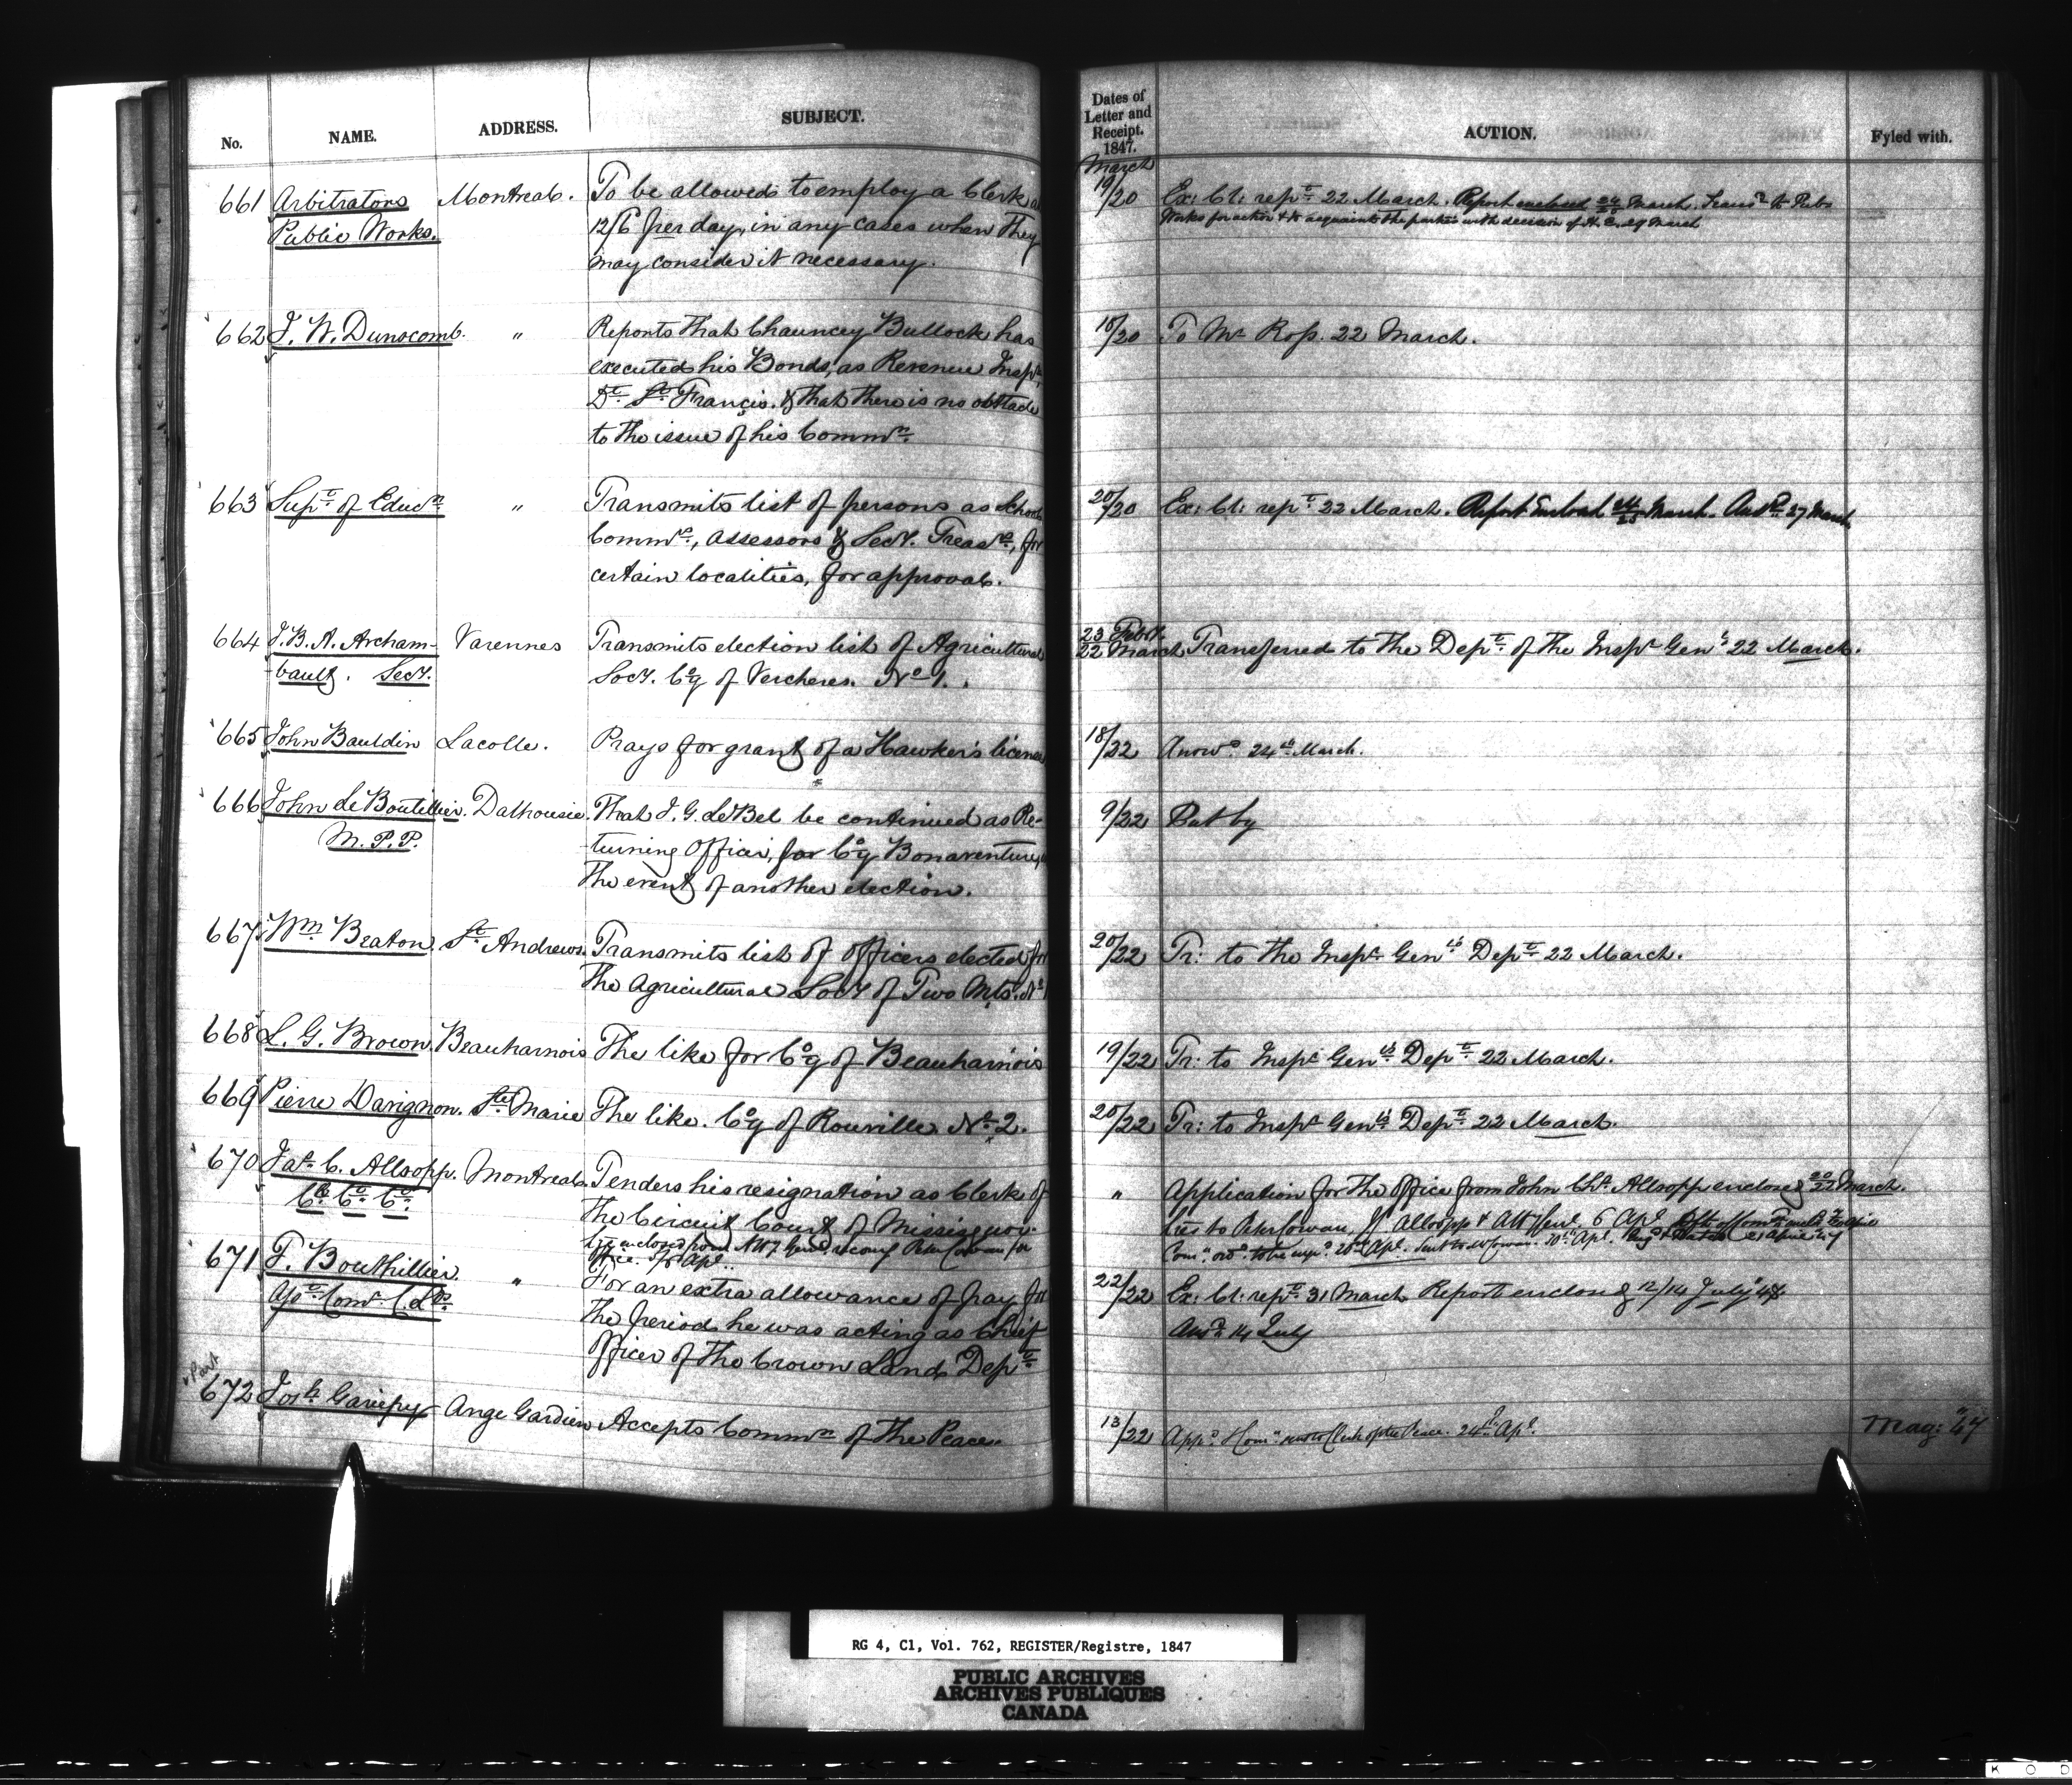 No. NAME. ADDRESS. SUBJECT.
661 Arbitrators Montreal. To be allowed to employ a Clerk
Public Works. 12/6 per day, in any cases when they
may consider it necessary.
662 J. W. Dunscomb. " Reports that Chauncey Bullock has
executed his Bonds, as Revenue Inspr.
Dt. St. Francis, & that there is no obstacle
to the issue of his Commn.
663 Supt. of Educn. " Transmits list of persons as School
Commrs., Assessors & Secy. Treasrs., for
certain localities, for approval.
664 J. B. A. Archam- Varennes Transmits election list of Agricultural
bault. Secy. Socy. Coy of Vercheres. No 1.
665 John Bauldin Lacolle. Prays for grant of a Hawker's licence
666 John Le Boutillier. Dalhousie. That J. G. LeBel be continued as Re-
M.P.P. turning Officer, for Coy Bonaventure,
the event of another election.
667 Wm. Beaton. St. Andrews. Transmits list of officers elected for
the Agricultural Socy of Two Mts. No
668 L. G. Brown. Beauharnois The like for Coy of Beauharnois
669 Pierre Davignon. Ste. Marie The like. Coy of Rouville No 2.
670 Jas. C. Allsopp. Montreal. Tenders his resignation as Clerk of
Ck. Ct. Ct. the Circuit Court of Missisquoi.
Lre enclosed from Atty Genl. recomg Peter Cowan for
Office. 5/6 Apl.
671 F. Bouthillier. " For an extra allowance of pay for
the period he was acting as Chief
Officer of the Crown Lands Dept.
Part
672 Josh. Gariepy Ange Gardien Accepts Commn. of the Peace.
Dates of
Letter and
Receipt.
1847. ACTION. Fyled with.
March
19/20 Ex: Cl: rept. 22 March. Report enclosed 24/25 March. Trans. to Pub.
Works for action & to acquaint the parties with decision of H. E. 29 March
18/20 To Mr Ross. 22 March.
20/20 Ex: Cl: rept. 22 March. Report Enclosed 24/25 March. Ansd. 27 March
23 Feby.
22 March Transferred to the Dept. of the Inspr Genl. 22 March.
18/22 Answd. 24th March.
9/22 Put by
20/22 Tr: to the Inspr. Genls. Dept. 22 March.
19/22 Tr: to Inspr Genls. Dept. 22 March.
20/22 Tr: to Inspr Genls. Dept. 22 March.
" Application for the Office from John Chs. Allsopp enclosed 20/22 March.
Lres to Peter Cowan, J. Allsopp & Att. Genl. 6 Apl.
22/22 Ex: Cl: rept. 31 March Report enclosed 12/14 July 47.
Ansd. 14 July
13/22 Appd. & Comn. sent to Clerk of the Peace. 24th Apl. Mag: 47
RG 4, C1, Vol. 762, REGISTER/Registre, 1847
PUBLIC ARCHIVES
ARCHIVES PUBLIQUES
CANADA